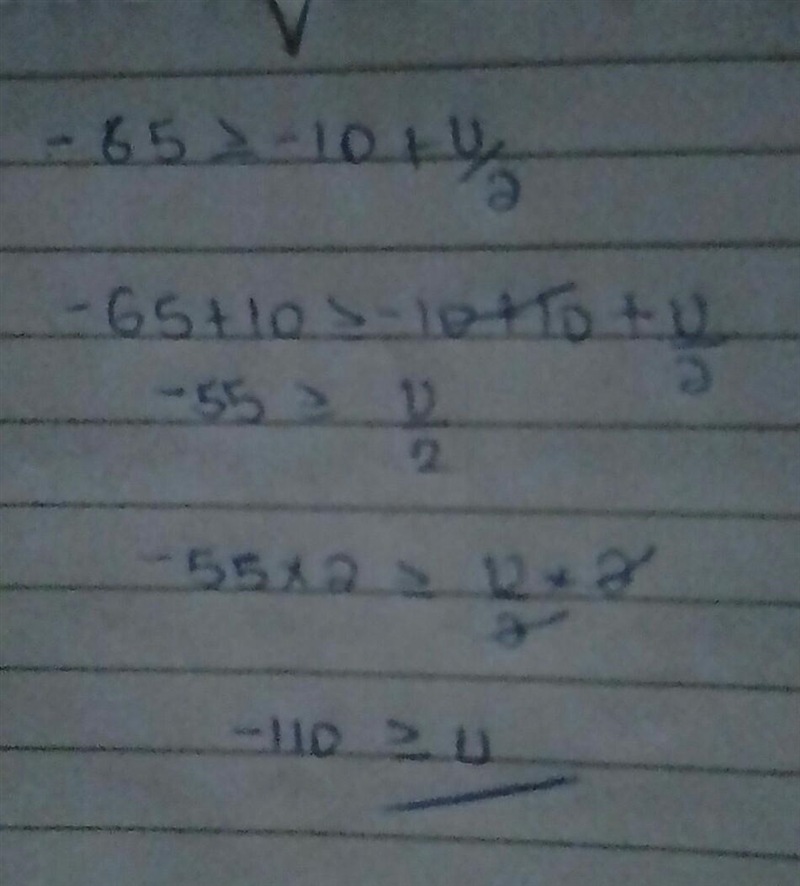 -65 ≥ -10 + U/2
-65+10 ≥ -10+10 + U/2
-55 ≥ U/2
-55×2 ≥ U/2 × 2
-110 ≥ U